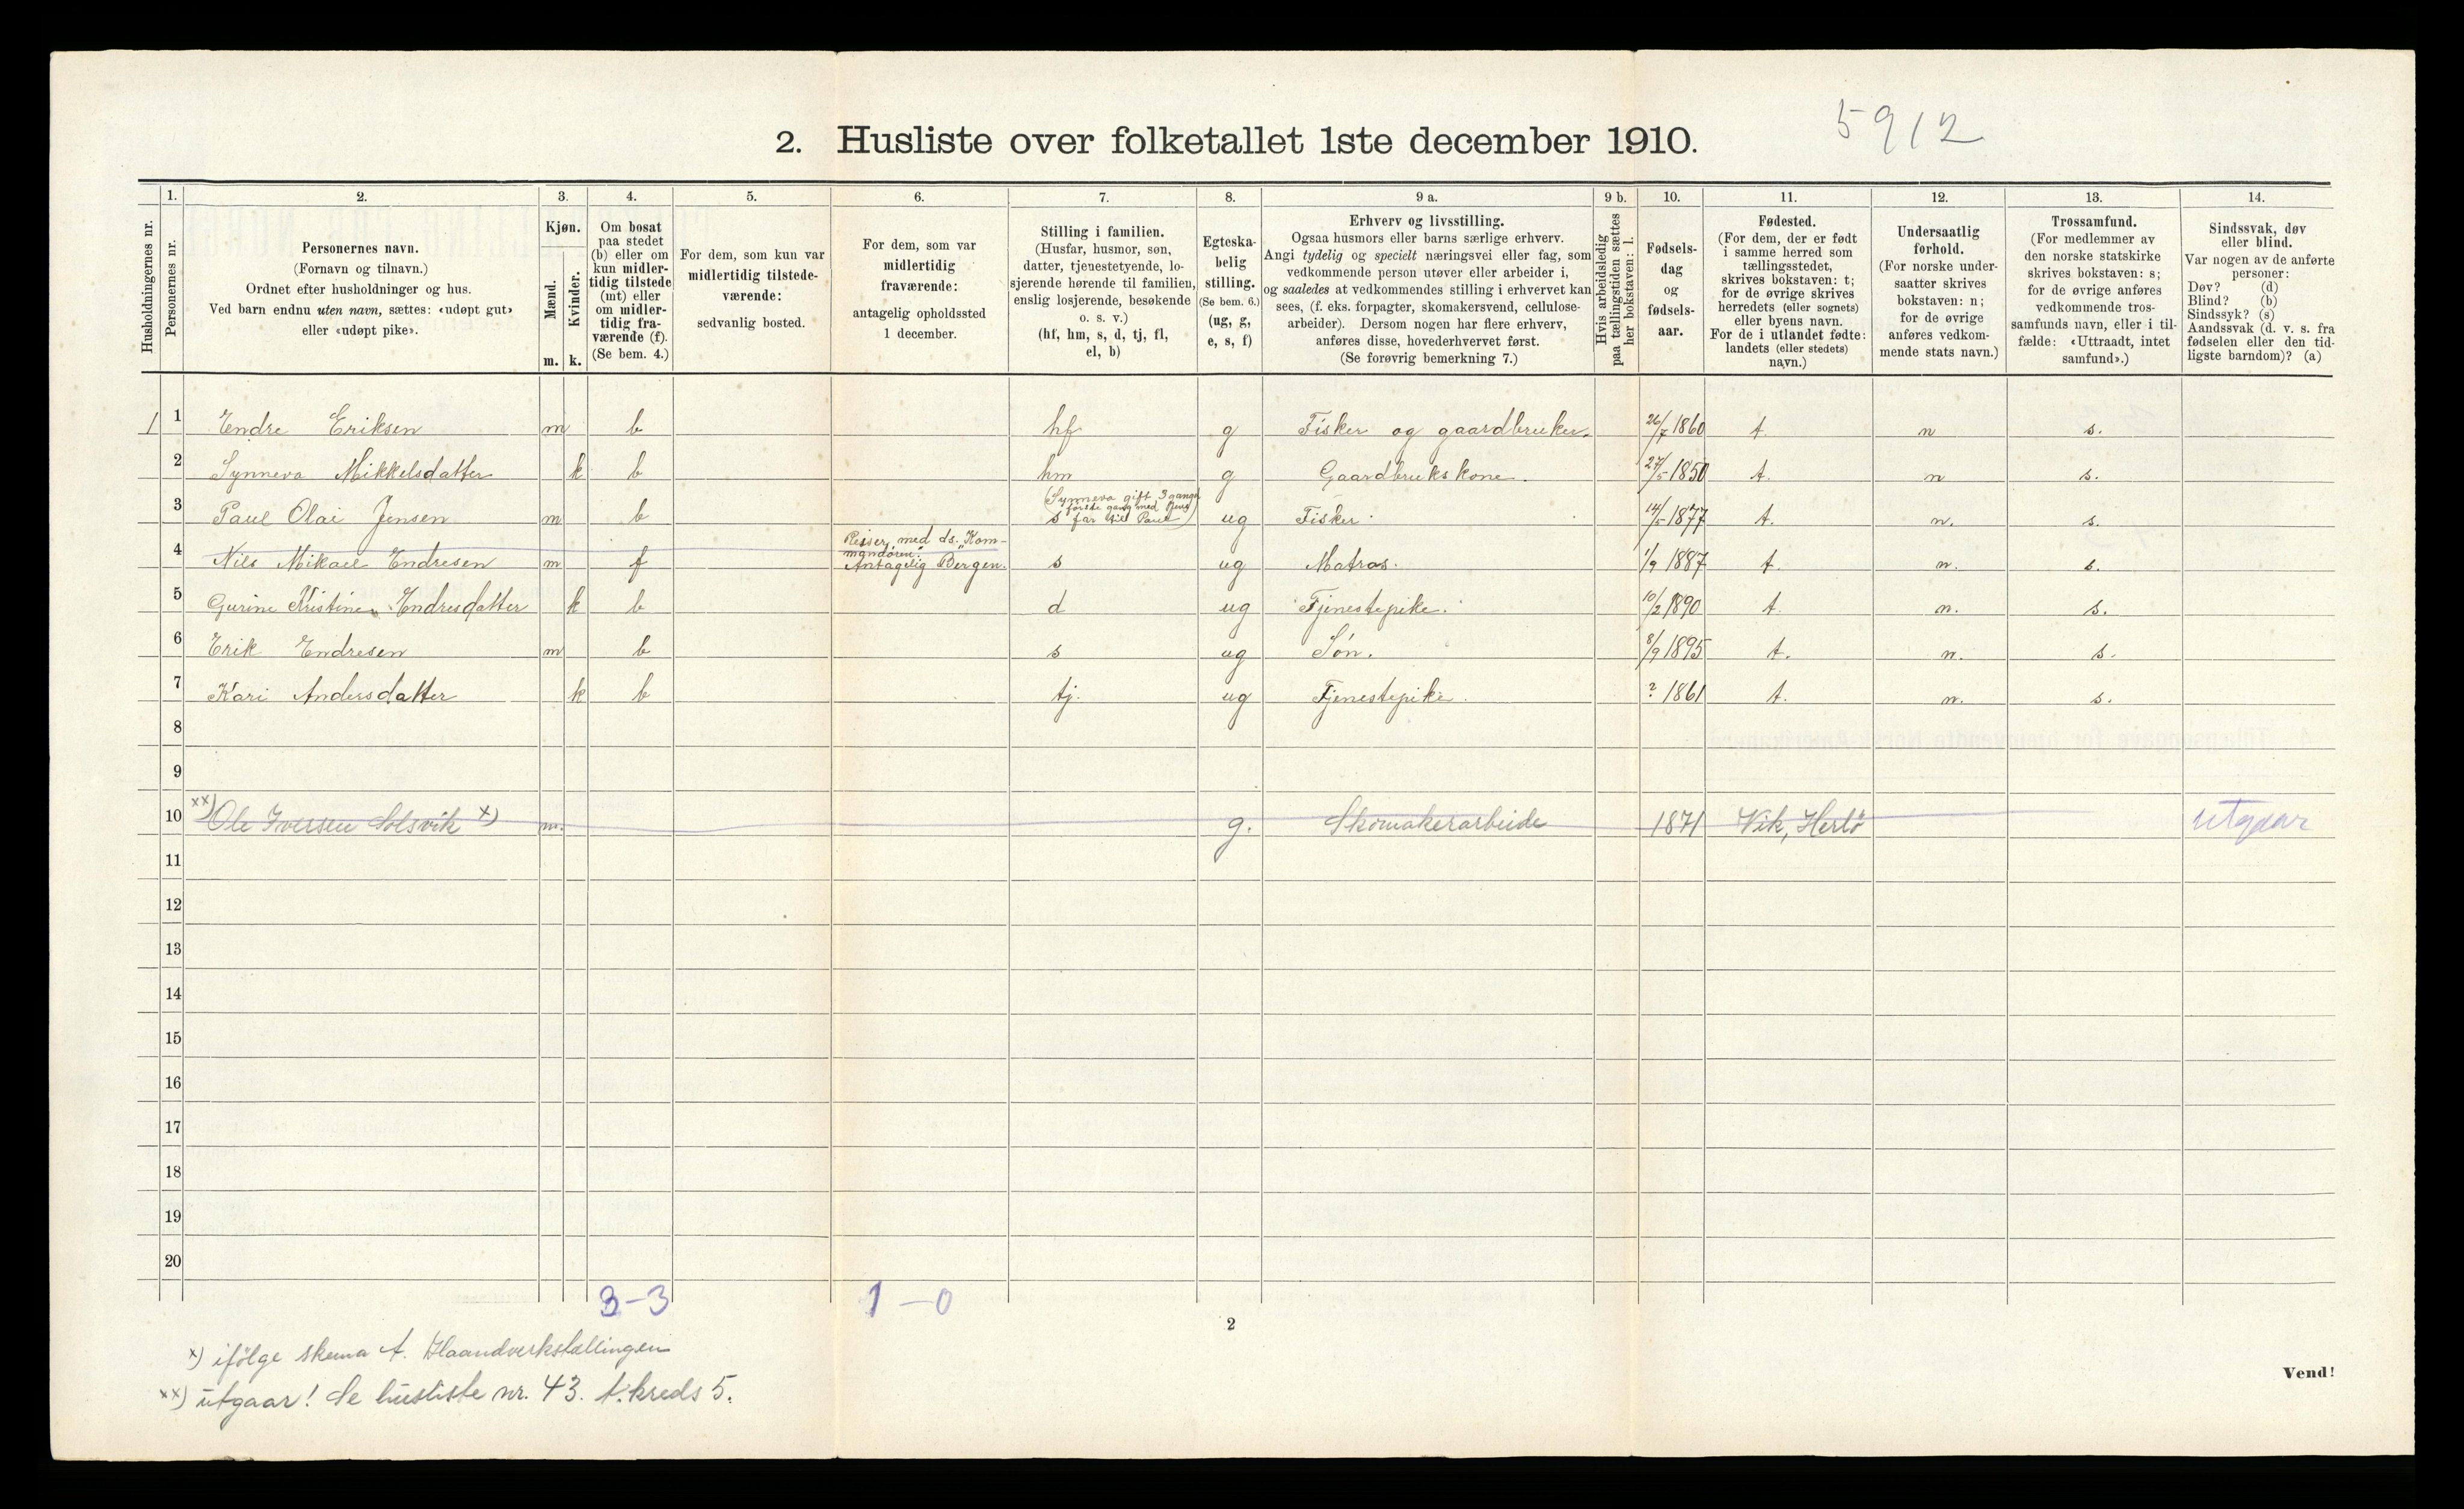 5912
2. Husliste over folketallet 1ste december 1910.
Husholdningernes nr.
1.
Personernes nr.
2.
Personernes navn.
(Fornavn og tilnavn.)
Ordnet efter husholdninger og hus.
Ved barn endnu uten navn, sættes: «udøpt gut»
eller «udøpt pike».
3.
Kjøn.
Mænd.
Kvinder.
m. k.
4.
Om bosat
paa stedet
(b) eller om
kun midler-
tidig tilstede
(mt) eller
om midler-
tidig fra-
værende (f).
(Se bem. 4.)
5.
For dem, som kun var
midlertidig tilstede-
værende:
sedvanlig bosted.
6.
For dem, som var
midlertidig
fraværende:
antagelig opholdssted
1 december.
7.
Stilling i familien.
(Husfar, husmor, søn,
datter, tjenestetyende, lo-
sjerende hørende til familien,
enslig losjerende, besøkende
o. s. v.)
(hf, hm, s, d, tj, fl,
el, b)
8.
Egteska-
belig
stilling.
(Se bem. 6.)
(ug, g,
e, s, f)
9 a.
Erhverv og livsstilling.
Ogsaa husmors eller barns særlige erhverv.
Angi tydelig og specielt næringsvei eller fag, som
vedkommende person utøver eller arbeider i,
og saaledes at vedkommendes stilling i erhvervet kan
sees, (f. eks. forpagter, skomakersvend, cellulose-
arbeider). Dersom nogen har flere erhverv,
anføres disse, hovederhvervet først.
(Se forøvrig bemerkning 7.)
9 b.
Hvis arbeidsledig
paa tællingstiden sættes
her bokstaven: l.
10.
Fødsels-
dag
og
fødsels-
aar.
11.
Fødested.
(For dem, der er født
i samme herred som
tællingsstedet,
skrives bokstaven: t;
for de øvrige skrives
herredets (eller sognets)
eller byens navn.
For de i utlandet fødte:
landets (eller stedets)
navn.)
12.
Undersaatlig
forhold.
(For norske under-
saatter skrives
bokstaven: n;
for de øvrige
anføres vedkom-
mende stats navn.)
13.
Trossamfund.
(For medlemmer av
den norske statskirke
skrives bokstaven: s;
for de øvrige anføres
vedkommende tros-
samfunds navn, eller i til-
fælde: «Uttraadt, intet
samfund».)
14.
Sindssvak, døv
eller blind.
Var nogen av de anførte
personer:
Døv? (d)
Blind? (b)
Sindssyk? (s)
Aandssvak (d. v. s. fra
fødselen eller den tid-
ligste barndom)? (a)
1 1 Endre Eriksen m b hf g Fisker og gaardbruker. 26/7 1860 t. n s.
2 Synneva Mikkelsdatter k b hm g Gaardbrukskone. 27/5 1850 t. n s.
(Synneva gift 3 gange
første gang med Jens
far til Paul)
3 Paul Olai Jensen m b s ug Fisker 14/5 1877 t. n. s.
Reiser med ds. "Kom-
mandøren".
4 Nils Mikael Endresen m f Antagelig Bergen. s ug Matros. 1/9 1887 t. n. s.
5 Gurine Kristine Endresdatter k b d ug Tjenestepike. 10/2 1890 t. n. s.
6 Erik Endresen m b s ug Søn. 8/9 1895 t. n. s.
7 Kari Andersdatter k b tj. ug Tjenestepike. ? 1861 t. n. s.
8
9
10 xx) Ole Iversen Solsvik x) m. g. Skomakerarbeide 1871 Vik, Herlö utgaar
11
12
13
14
15
16
17
18
19
20
3-3 1-0
2
x) ifölge skema A. Haandverkstællingen
xx) utgaar! Se husliste nr. 43. t.kreds 5.
Vend!